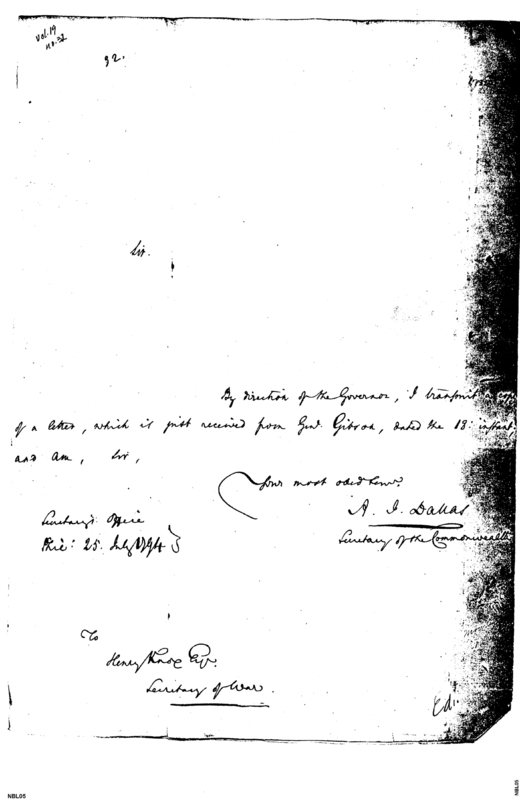 Vol. 19
No. 32
32.
Sir.
By direction of the Governor, I transmit a copy
of a letter, which is just received from Genl. Gibson, dated the 18: instant,
and am, Sir,
Your most obed Servt.
A. J. Dallas
Secretary of the Commonwealth
Secretary's Office
Phil: 25. July 1794 }
To
Henry Knox Esqr.
Secretary of War.
NBL05
NBL05